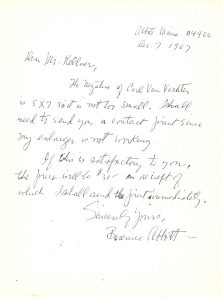 Abbot Maine 04406
Dec. 7 1967
Dear Mr. Kellner,
The negative of Carl Van Vechten
is 5x7 so it is not too small. I shall
need to send you a contact print since
my enlarger is not working.
If this is satisfactory to you,
the price will be on receipt of
which I shall send the print immediately.
Sincerely yours,
Berenice Abbott